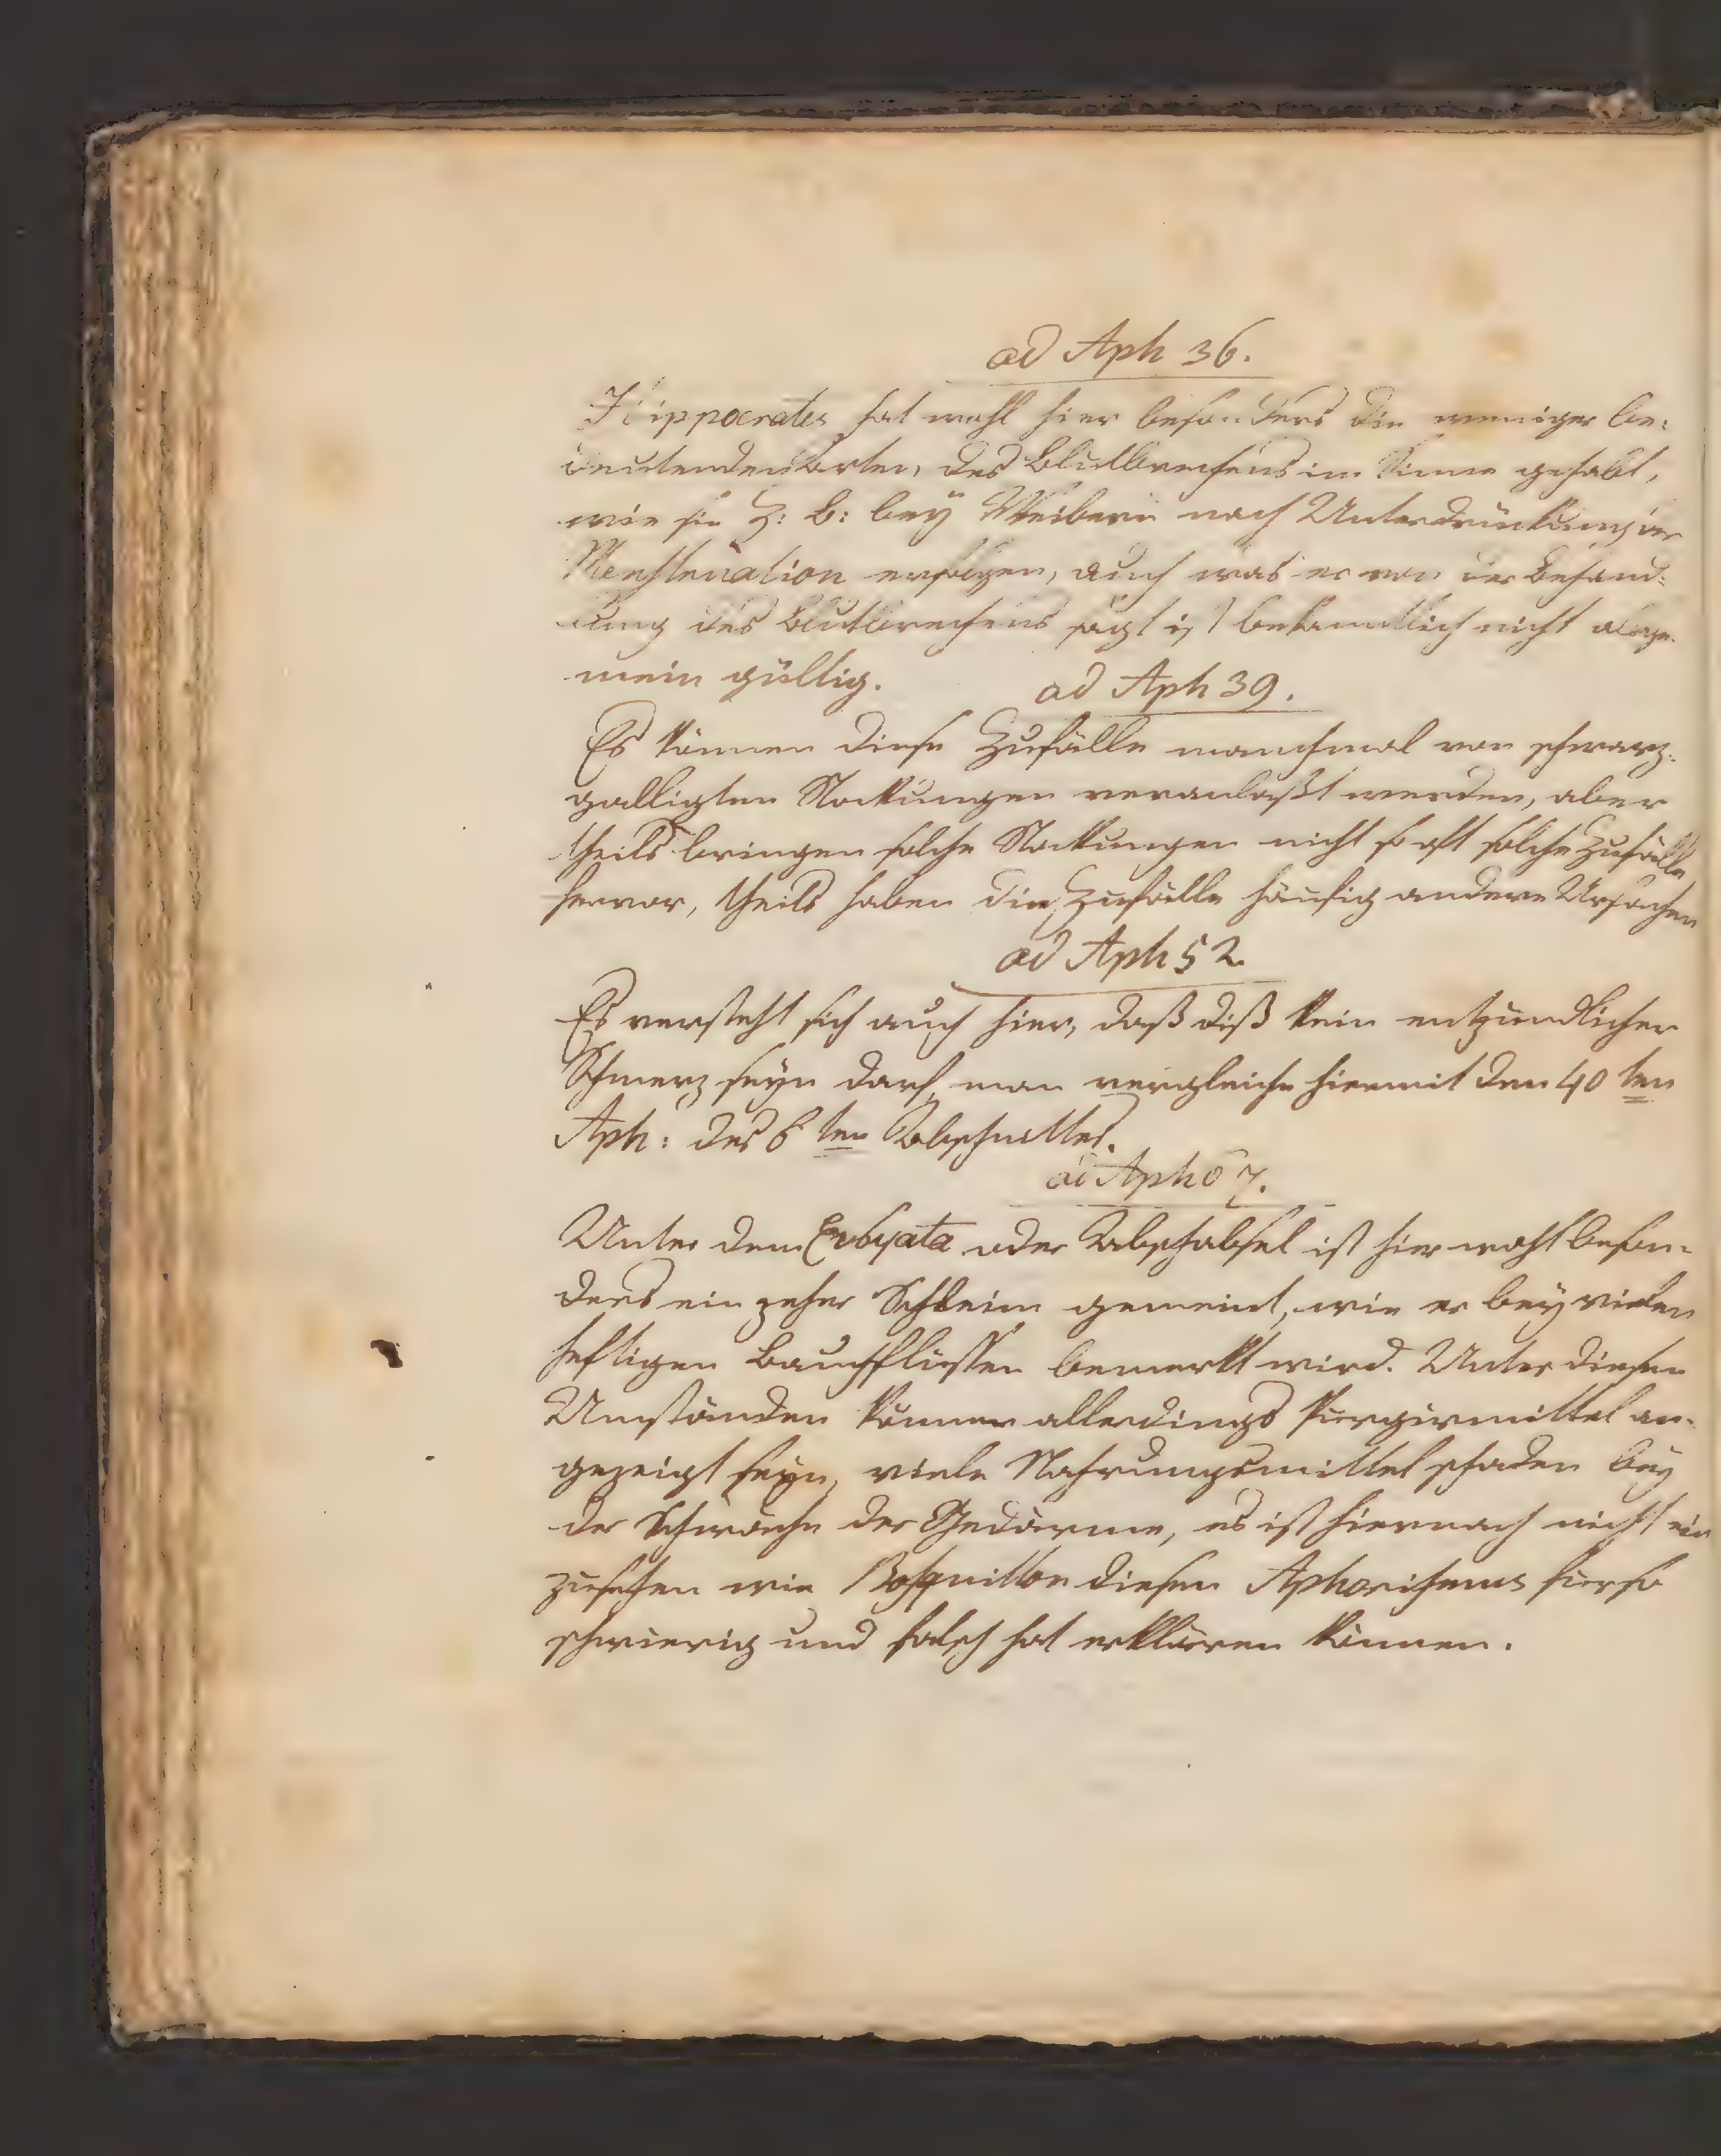 ad Aph 36.
Hippocrates hat wohl hier besonders die weniger be-
deutenden Arten, des Blutbrechens im Sinne gehabt,
wie sie z: B: bey Weibern nach Unterdrückung der
Menstruation erfolgen, auch was er von der Behand-
lung des Blutbrechens sagt ist bekanntlich nicht allge-
mein gültig.
ad Aph 39.
Es können diese Zufälle manchmal von schwarz-
galligten Stockungen veranlaßt werden, aber
theils bringen solche Stockungen nicht so oft solche Zufälle
hervor, theils haben die Zufälle häufig andere Ursachen
ad Aph 52
Es versteht sich auch hier, daß diß kein entzündlicher
Schmerz seyn darf, man vergleiche hiermit den 40 ten
Aph: des 6 ten Abschnittes.
ad Aph 67.
Unter dem oder Abschabsel ist hier wohl beson-
ders ein zeher Schleim gemeint, wie er bey vielen
heftigen Bauchflüssen bemerkt wird. Unter diesen
Umständen können allerdings Purgirmittel an-
gezeigt seyn, viele Nahrungsmittel schaden bey
der Schwäche der Gedärme, es ist hiernach nicht ein
zusehen wie Bosquillon diesen Aphorismus für so
schwierig und falsch hat erklären können.